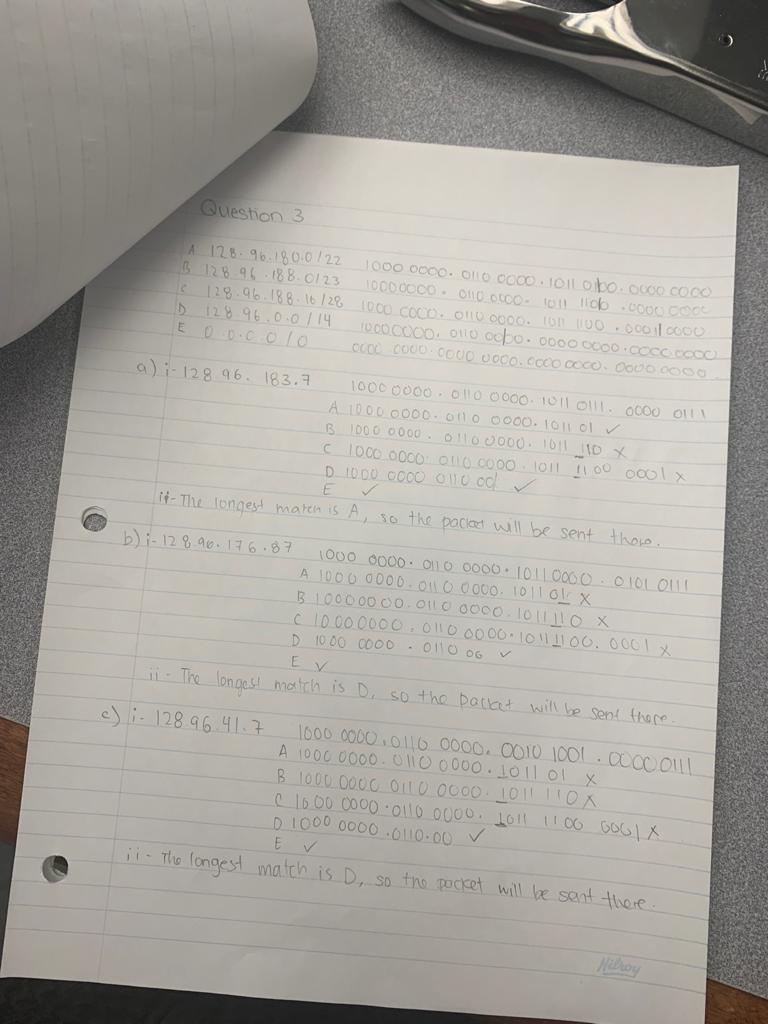 Question 3
A 128.96.180.0/22 1000 0000. 0110 0000. 1011 0100. 0000 0000
B 128.96.188.0/23 10000000. 0110 0000. 1011 1100 .0000 0000
C 128.96.188.16/28 1000 0000. 0110 0000. 1011 1100 .0001 0000
D 128.96.0.0/14 10000000. 0110 0000. 00000000.0000 0000
E 0.0.0.0/0 0000 0000.0000 0000.0000 0000. 0000 0000.
a) i- 128 96. 183.7 1000 0000. 0110 0000. 1011 0111. 0000 0111
A 1000 0000. 0110 0000. 1011 01 ✓
B 1000 0000. 0110 0000. 1011 110 x
C 1000 0000. 0110 0000. 1011 1100 0001 x
D 1000 0000 0110 00 ✓
E ✓
ii- The longest match is A, so the packet will be sent there.
b) i- 128.96.176.87 1000 0000. 0110 0000. 1011 0000. 0101 0111
A 1000 0000. 0110 0000. 1011 01 x
B 10000000. 0110 0000. 1011110 x
C 10000000. 0110 0000. 10111100. 0001 x
D 1000 0000. 0110 00 ✓
E ✓
ii - The longest match is D, so the packet will be sent there.
c) i- 128.96.41.7 1000 0000. 0110 0000. 0010 1001. 00000111
A 1000 0000. 0110 0000. 1011 01 x
B 1000 0000 0110 0000. 1011 110 x
C 1000 0000.0110 0000. 1011 1100 0001 x
D 1000 0000.0110.00 ✓
E ✓
ii - The longest match is D, so the packet will be sent there.
Hilroy